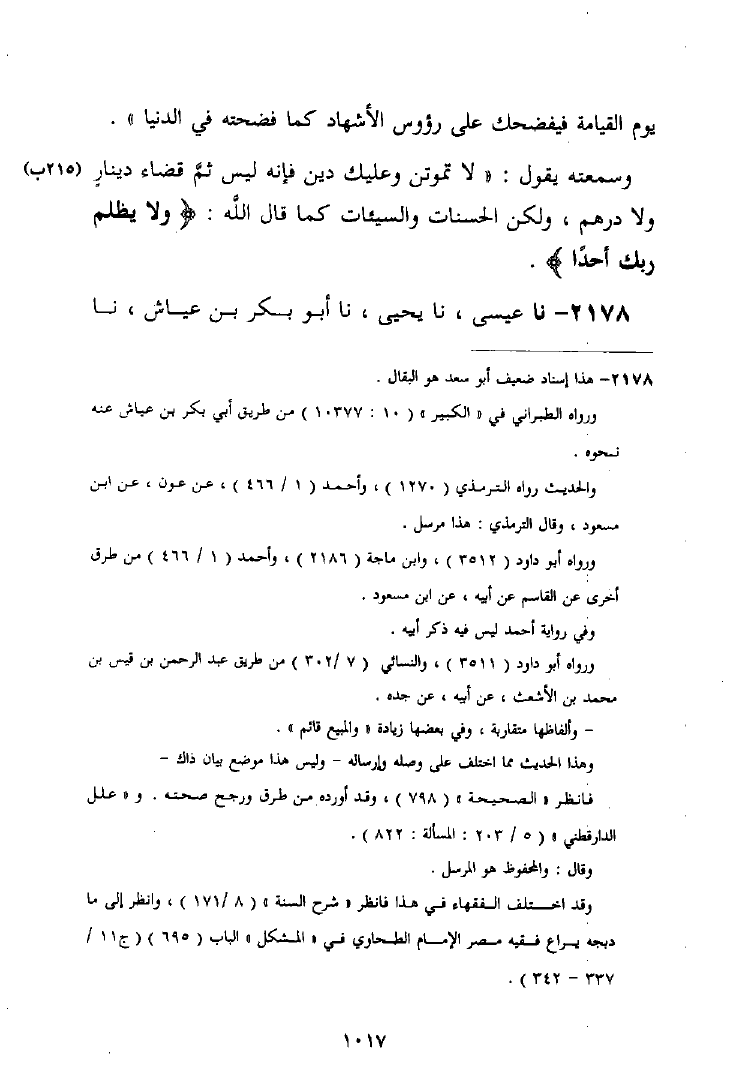 يوم القيامة فيفضحك على رؤوس الأشهاد كما فضحته في الدنيا » .
وسمعته يقول : « لا تموتن وعليك دين فإنه ليس ثمَّ قضاء دينارٍ (٢١٥ب)
ولا درهم ، ولكن الحسنات والسيئات كما قال اللَّه : ﴿ ولا يظلم
ربك أحدًا ﴾ .
٢١٧٨- نا عيسى ، نا يحيى ، نا أبو بكر بن عياش ، نا
٢١٧٨- هذا إسناد ضعيف أبو سعد هو البقال .
ورواه الطبراني في « الكبير » ( ١٠ : ١٠٣٧٧ ) من طريق أبي بكر بن عياش عنه
نحوه .
والحديث رواه الترمذي ( ١٢٧٠ ) ، وأحمد ( ١ / ٤٦٦ ) ، عن عون ، عن ابن
مسعود ، وقال الترمذي : هذا مرسل .
ورواه أبو داود ( ٣٥١٢ ) ، وابن ماجة ( ٢١٨٦ ) ، وأحمد ( ١ / ٤٦٦ ) من طرق
أخرى عن القاسم عن أبيه ، عن ابن مسعود .
وفي رواية أحمد ليس فيه ذكر أبيه .
ورواه أبو داود ( ٣٥١١ ) ، والنسائي ( ٧ /٣٠٢ ) من طريق عبد الرحمن بن قيس بن
محمد بن الأشعث ، عن أبيه ، عن جده .
- وألفاظها متقاربة ، وفي بعضها زيادة « والمبيع قائم » .
وهذا الحديث مما اختلف على وصله وإرساله - وليس هذا موضع بيان ذاك -
فانظر « الصحيحة » ( ٧٩٨ ) ، وقد أورده من طرق ورجح صحته . و « علل
الدارقطني » ( ٥ / ٢٠٣ : المسألة : ٨٢٢ ) .
وقال : والمحفوظ هو المرسل .
وقد اختلف الفقهاء في هذا فانظر « شرح السنة » ( ٨ /١٧١ ) ، وانظر إلى ما
دبجه يراع فقيه مصر الإمام الطحاوي في « المشكل » الباب ( ٦٩٥ ) ( ج١١ /
٣٣٧ - ٣٤٢ ) .
١٠١٧